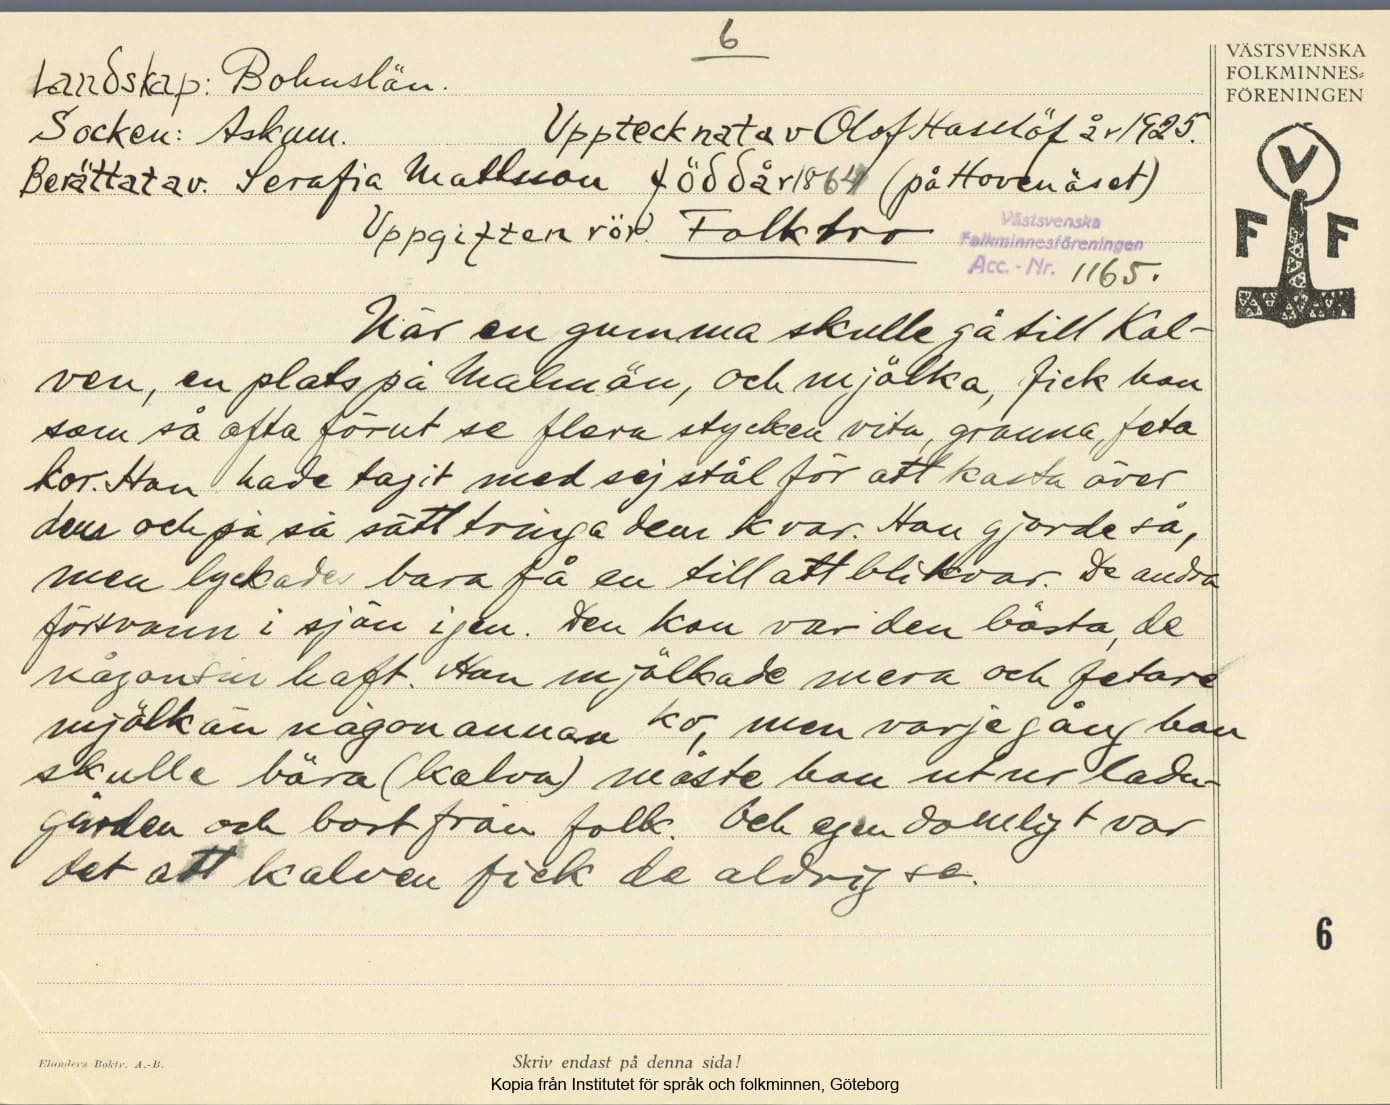 6
VÄSTSVENSKA
FOLKMINNES=
FÖRENINGEN
Landskap: Bohuslän.
Socken: Askum. Upptecknat av Olof Hasslöf år 1925.
Berättat av. Serafia Mattsson född år 1864 (på Hovenäset)
Uppgiften rör. Folktro
Västsvenska
Folkminnesföreningen
Acc. - Nr. 1165.
V
F F
När en gumma skulle gå till Kal-
ven, en plats på Malmön, och mjölka, fick hon
som så ofta förut se flera stycken vita, granna, feta
kor. Hon hade tagit med sej stål för att kasta över
dem och på så sätt tvinga dem kvar. Hon gjorde så,
men lyckades bara få en till att bli kvar. De andra
försvann i sjön igen. Den kon var den bästa, de
någonsin haft. Hon mjölkade mera och fetare
mjölk än någon annan ko, men varje gång hon
skulle bära (kalva) måste hon ut ur ladu-
gården och bort från folk. Och egendomligt var
det att kalven fick de aldrig se.
6
Elanders Boktr. A.-B.
Skriv endast på denna sida!
Kopia från Institutet för språk och folkminnen, Göteborg